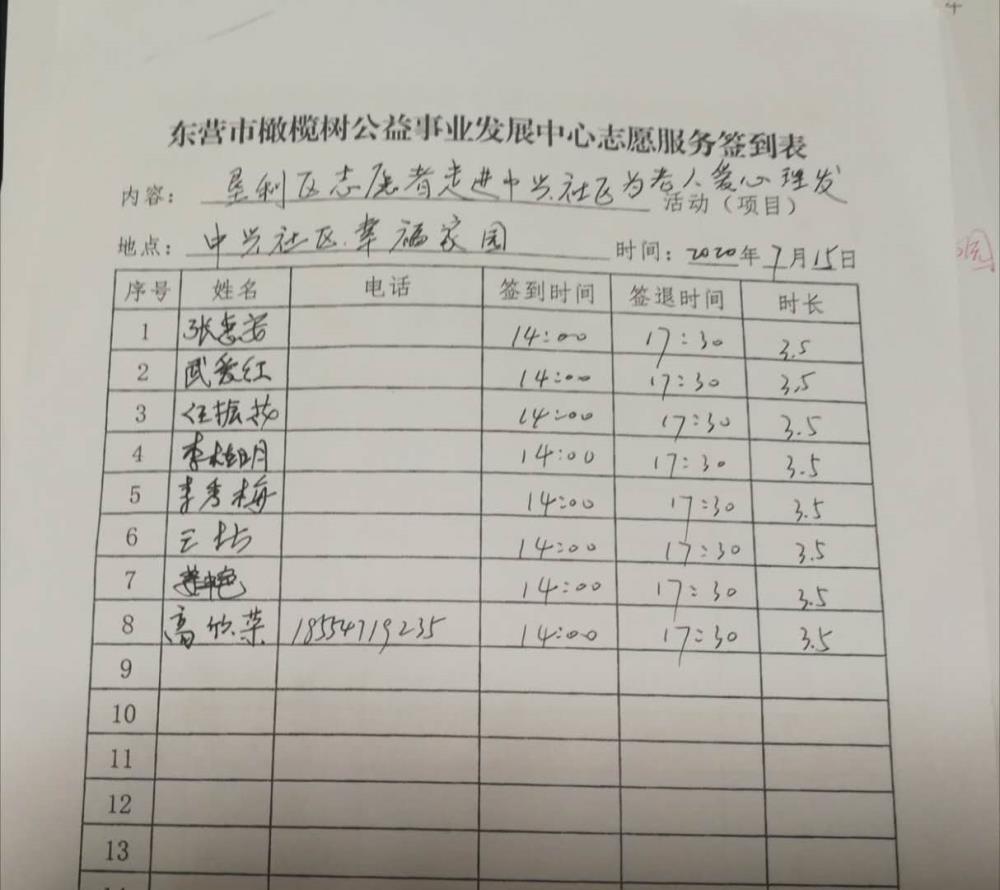 东营市橄榄树公益事业发展中心志愿服务签到表
内容： 垦利区志愿者走进中兴社区为老人爱心理发 活动（项目）
地点： 中兴社区幸福家园 时间：2020年7月15日
序号 姓名 电话 签到时间 签退时间 时长
1 14:00 17:30 3.5
2 武爱红 14:00 17:30 3.5
3 14:00 17:30 3.5
4 14:00 17:30 3.5
5 李秀梅 14:00 17:30 3.5
6 14:00 17:30 3.5
7 14:00 17:30 3.5
8 高欣荣 18554719235 14:00 17:30 3.5
9
10
11
12
13